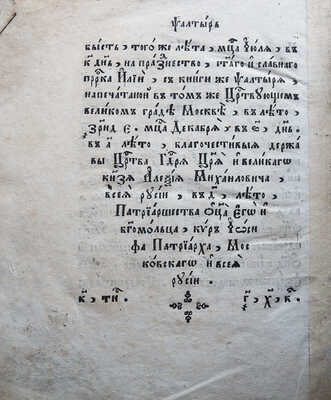 Ѱалтырь
бысть, того же лѣта, мц҃а їюлѧ, въ
к҃ дн҃ь, на празⷣнество, ст҃аго и҆ славнаго
прⷪ҇рка И҆лїи҆, съ книги же Ѱалтырѧ,
напечатанои҆ въ томъ же Црⷭ҇твующемъ
великомъ градѣ Москвѣ, въ лѣто,
мц҃а Декабрѧ, въ дн҃ь.
въ а҃ лѣто, благочестивыѧ держа
вы Црⷭ҇тва Гдⷭ҇рѧ Цр҃ѧ и҆ великагѡ
кн҃зѧ Алеѯїѧ Михаиловича,
всеѧ русїи, въ д҃, лѣто,
Патрїаршества Ѻ҆ц҃а Е҆гѡ̀ и҆
бг҃омольца, куръ Їѡ҆си
фа Патрїарха, Мос
ковскагѡ и҆ всеѧ
русїи.